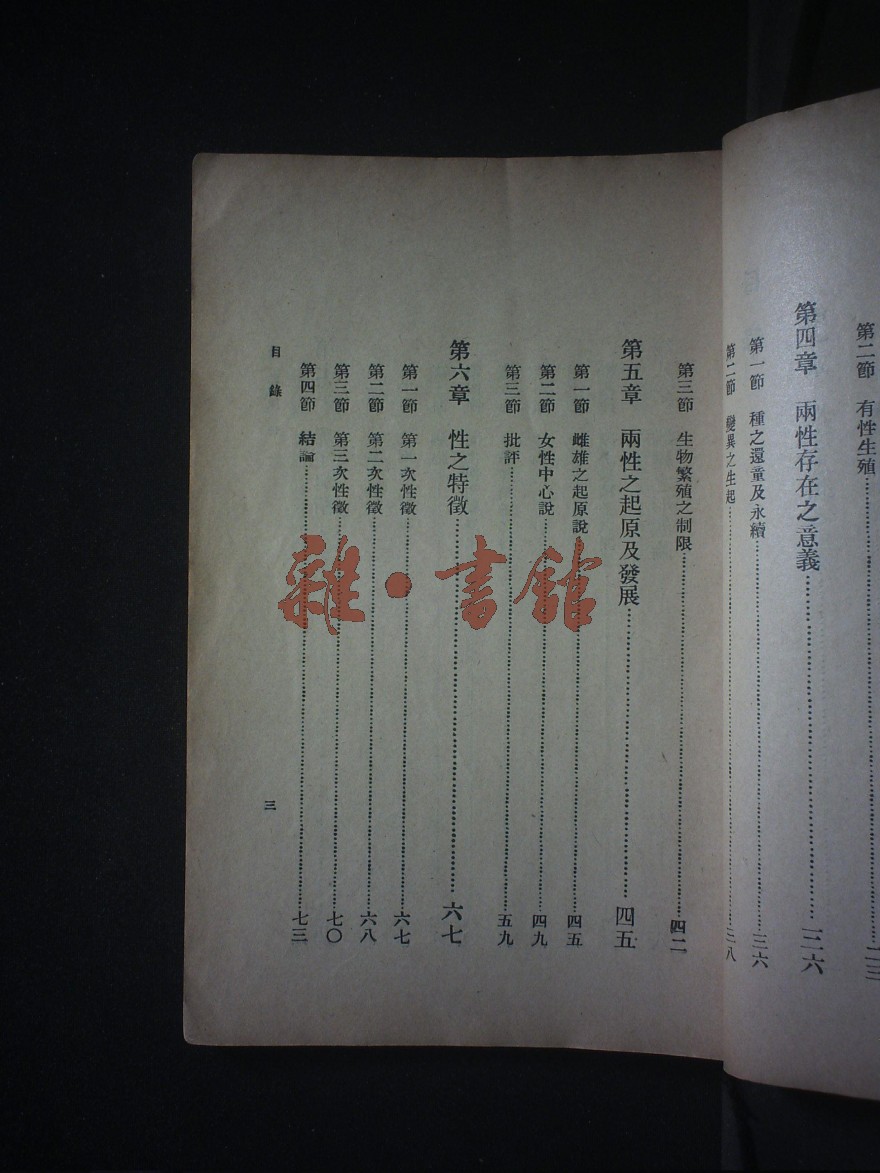 第二節 有性生殖……二三
第四章 兩性存在之意義……三六
第一節 種之還童及永續……三六
第二節 變異之生起……三八
第三節 生物繁殖之制限……四二
第五章 兩性之起原及發展……四五
第一節 雌雄之起原說……四五
第二節 女性中心說……四九
第三節 批評……五九
第六章 性之特徵……六七
第一節 第一次性徵……六七
第二節 第二次性徵……六八
第三節 第三次性徵……七〇
第四節 結論……七三
目錄
三
雜·書館